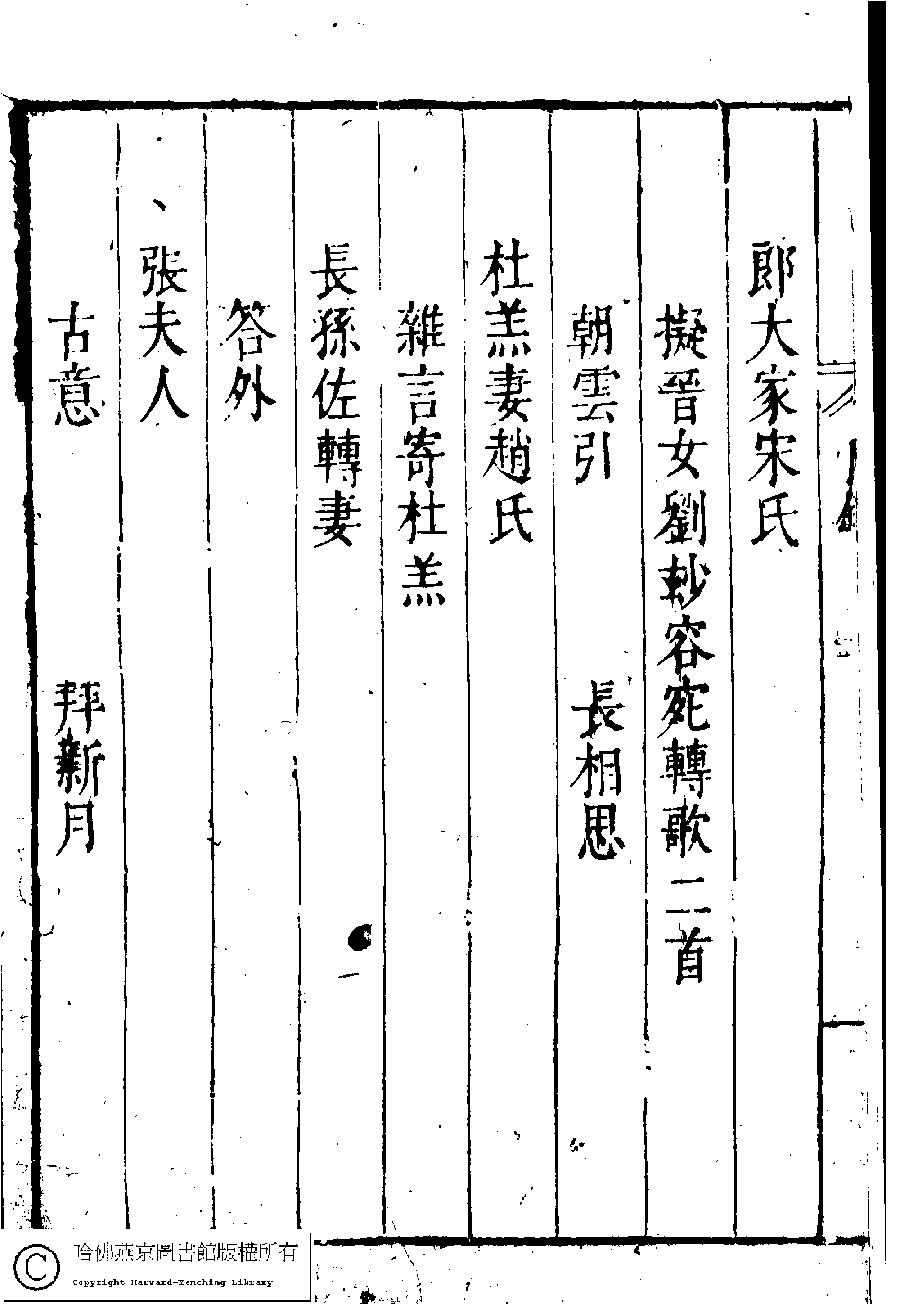 郎大家宋氏
擬晉女劉妙容宛轉歌二首
朝雲引 長相思
杜羔妻趙氏
雜言寄杜羔
長孫佐轉妻
答外
張夫人
古意 拜新月
哈佛燕京圖書館版權所有
Copyright Harvard-Yenching Library